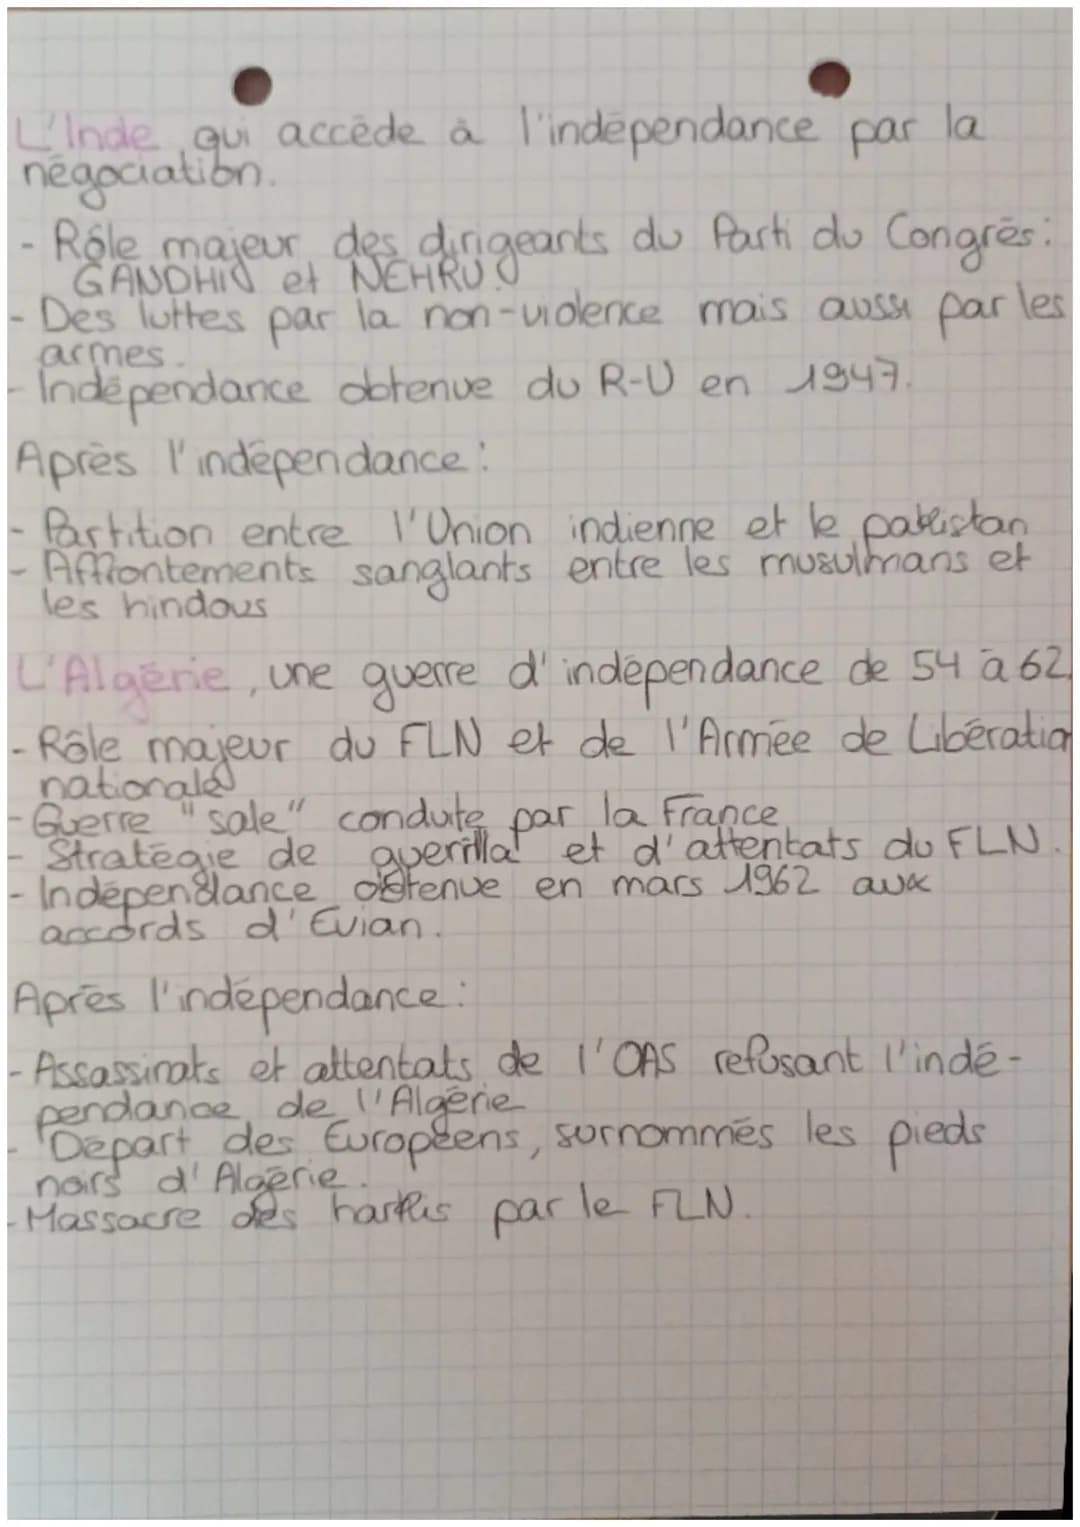 L'Inde, qui accède à l'indépendance par la
négociation.
- Rôle majeur des dirigeants du Parti du Congrès :
GANDHI et NEHRU.
- Des luttes par la non-violence mais aussi par les
armes.
- Indépendance obtenue du R-U en 1947.
Après l'indépendance :
- Partition entre l'Union indienne et le pakistan
- Affrontements sanglants entre les musulmans et
les hindous
L'Algérie, une guerre d'indépendance de 54 à 62.
- Rôle majeur du FLN et de l'Armée de Libération
nationale
- Guerre "sale" conduite par la France
- Stratégie de guerilla et d'attentats du FLN.
- Indépendance obtenue en mars 1962 aux
accords d'Evian.
Après l'indépendance :
- Assassinats et attentats de l'OAS refusant l'indé-
pendance de l'Algérie
- Départ des Européens, surnommés les pieds
noirs d'Algérie.
- Massacre des harkis par le FLN.